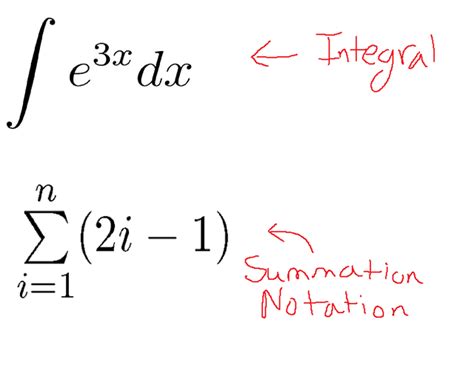 ∫ e^{3x} dx ← Integral
n
∑ (2i − 1)
i=1
Summation
Notation